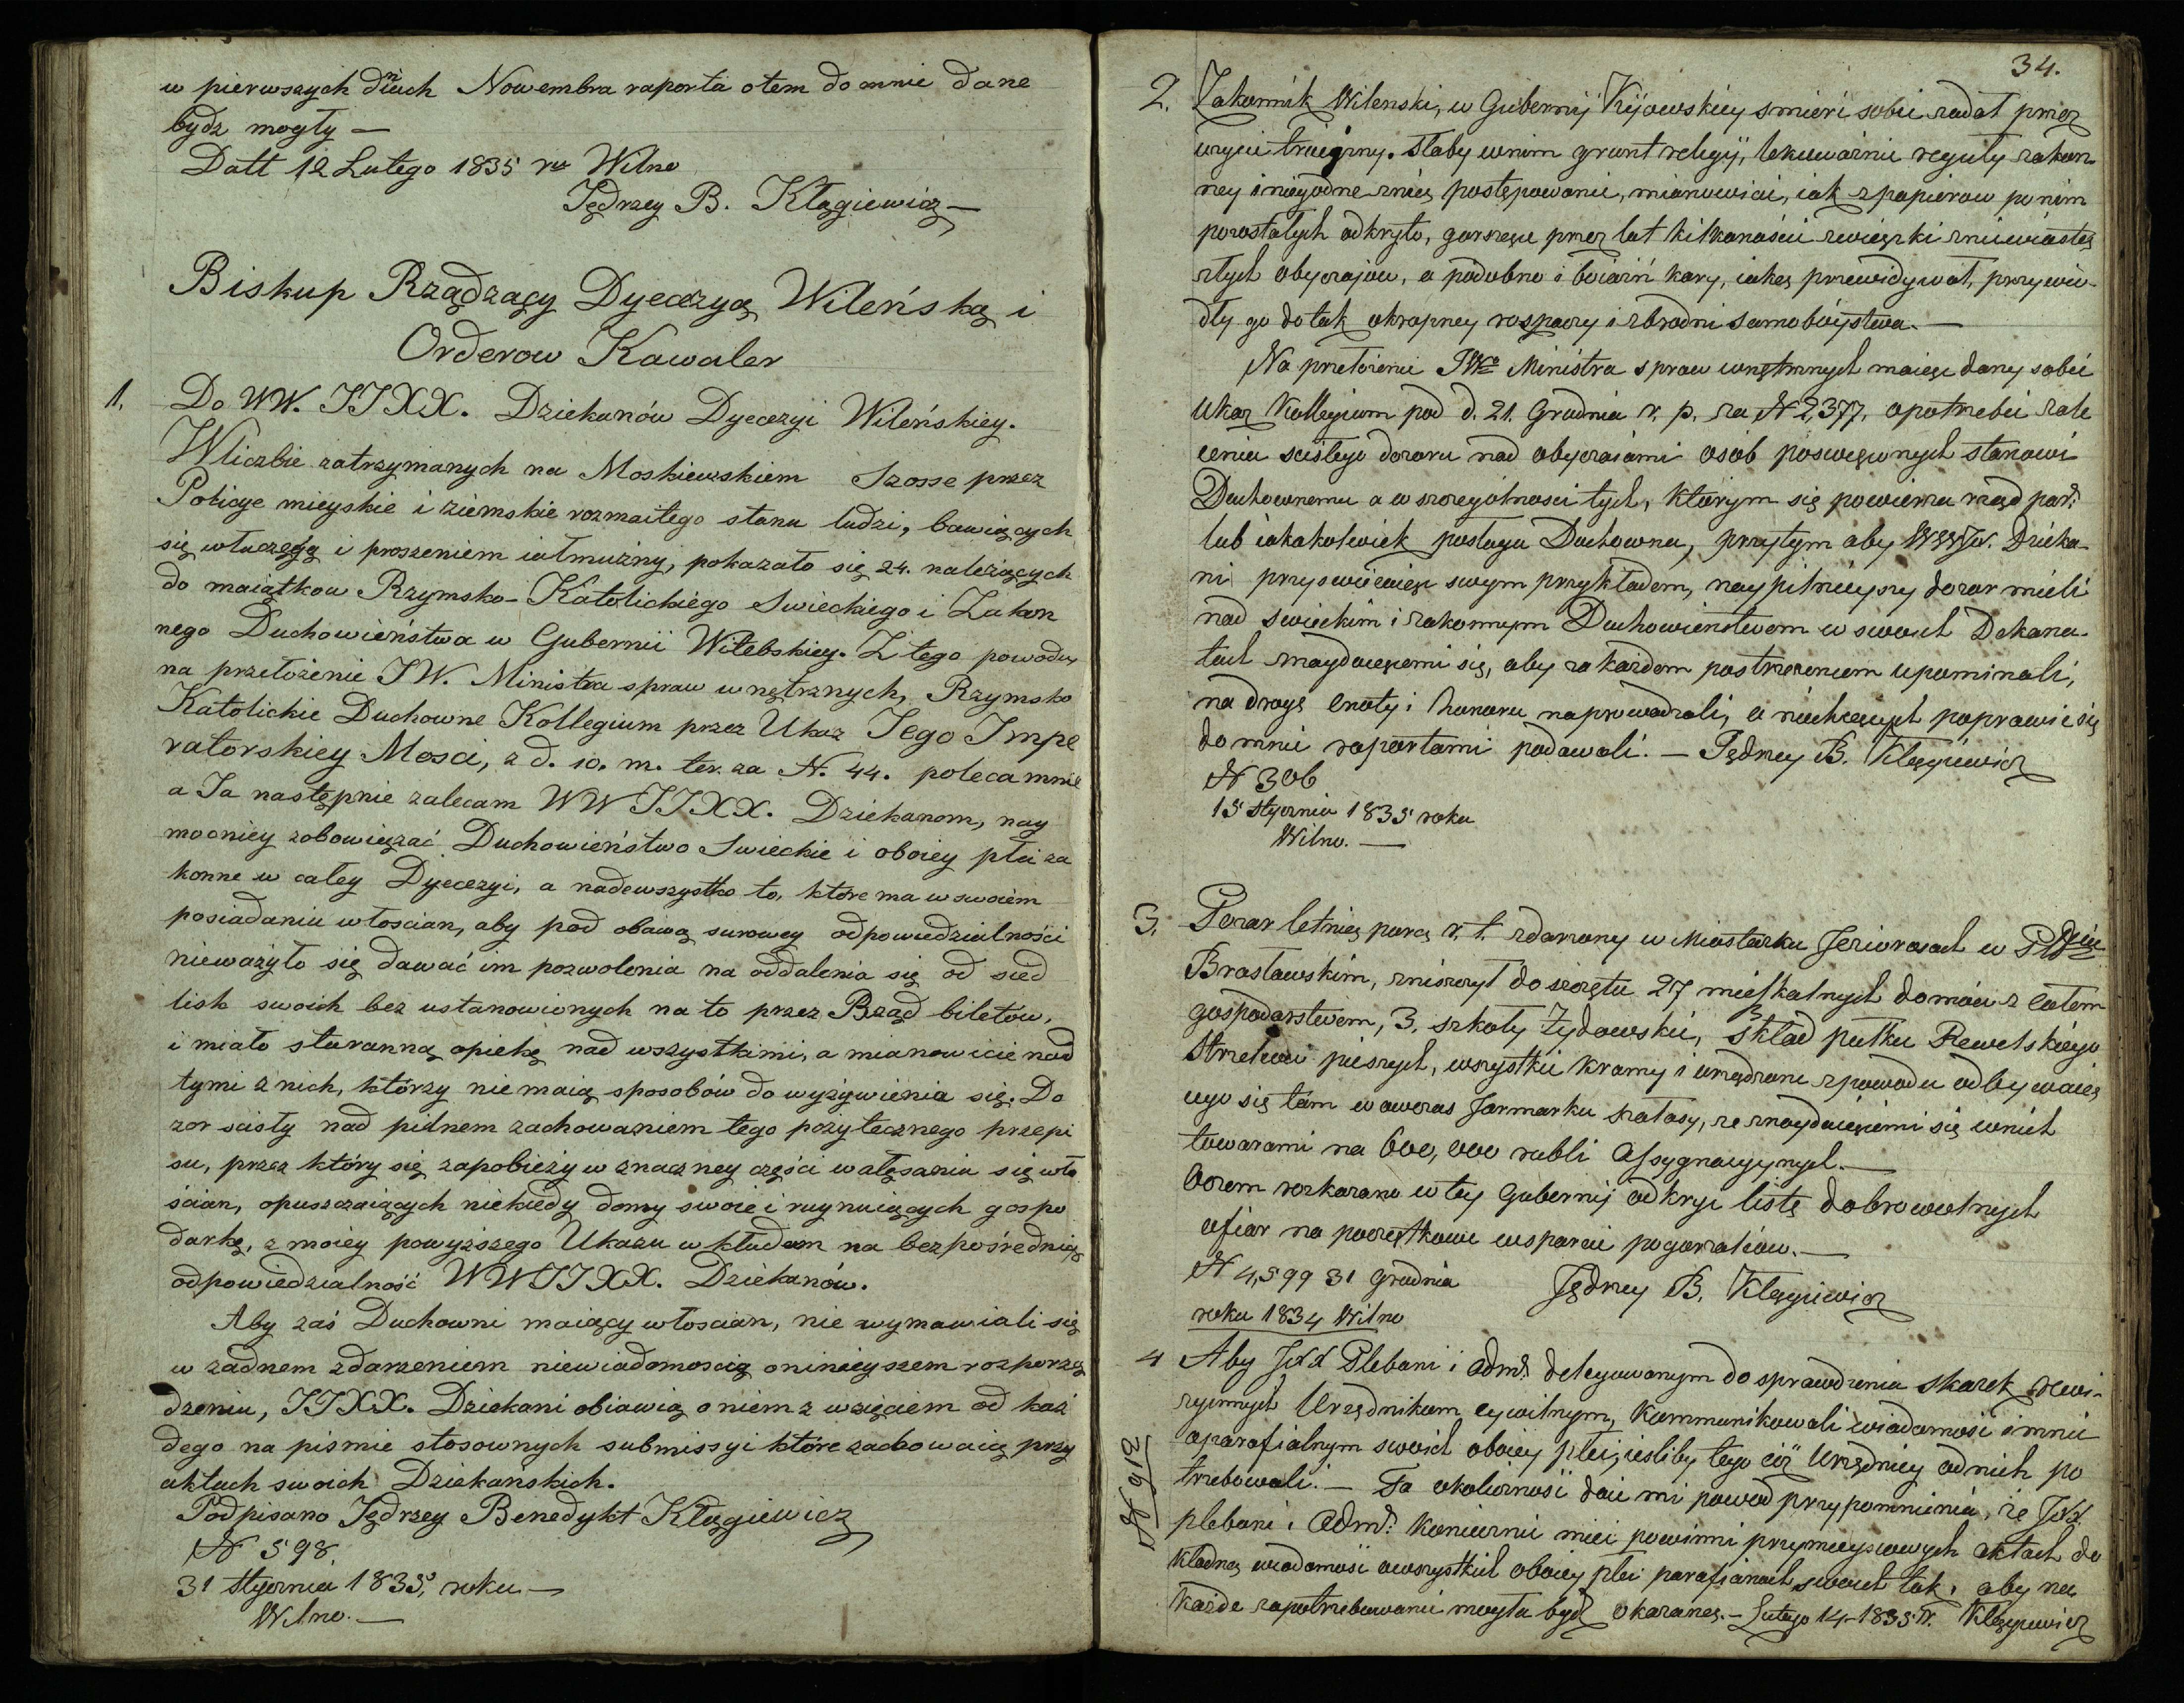 w pierwszych dniach Nowembra raporta o tem do mnie dane
bydz mogły —
Datt 12 Lutego 1835 ru Wilno
Jędrzey B. Kłągiewicz —
Biskup Rządzący Dyecezyą Wileńską i
Orderow Kawaler
1. Do WW. JJXX. Dziekanów Dyecezyi Wileńskiey.
W liczbie zatrzymanych na Moskiewskiem Szosse przez
Policye mieyskie i ziemskie rozmaitego stanu ludzi, bawiących
się włuczęgą i proszeniem iałmużny, pokazało się 24. należących
do maiątkow Rzymsko-Katolickiego Swieckiego i Zakon
nego Duchowieństwa w Gubernii Witebskiey. Z tego powodu
na przełożenie JW. Ministra spraw wnętrznych, Rzymsko
Katolickie Duchowne Kollegium przez Ukaz Jego Impe
ratorskiey Mosci, z d. 10. m. ter. za N. 44. poleca mnie
a Ja następnie zalecam WWJJXX. Dziekanom, nay
mocniey zobowięzać Duchowieństwo Swieckie i oboiey płci za
konne w całey Dyecezyi, a nadewszystko to, które ma w swoiem
posiadaniu włoscian, aby pod obawą surowey odpowiedzialności
nieważyło się dawać im pozwolenia na oddalenia się od sied
lisk swoich bez ustanowionych na to przez Rząd biletów,
i miało staranną opiekę nad wszystkimi, a mianowicie nad
tymi z nich, którzy nie maią sposobów do wyżywienia się. Do
zor scisły nad pilnem zachowaniem tego pożytecznego przepi
su, przez który się zapobieży w znaczney części wałęsaniu się wło
ścian, opuszczaiących niekiedy domy swoie i ruynuiących gospo
darkę, z moiey powyższego Ukazu wkładam na bezpośrednią
odpowiedzialność WWJJXX. Dziekanów.
Aby zaś Duchowni maiący włoscian, nie wymawiali się
w żadnem zdarzeniem niewiadomoscią o ninieyszem rozporzą
dzeniu, JJXX. Dziekani obiawią o niem z wzięciem od każ
dego na pismie stosownych submissyi które zachowaią przy
aktach swoich Dziekańskich.
Podpisano Jędrzey Benedykt Kłągiewicz
N 598.
31 stycznia 1835 roku. —
Wilno. —
34.
2. Zakonnik Wilenski, w Gubernij Kijowskiey smierć sobie zadał przez
użycie trucizny. Słaby w nim grunt religij, lekceważnie reguły zakon-
ney i niezgodne z nią postępowanie, mianowicie, iak z papierow po nim
pozostałych odkryto, gorszące przez lat kilkanaście zwięzki z niewiastą
złych obyczajow, a podobno i boiaźń kary, iaką przewidywał, przywio-
dły go do tak okropney rospaczy i zbrodni samobóystwa. —
Na przełożenie JWo Ministra spraw wnętrznych maiąc dany sobie
Ukaz Kollegium pod d. 21. Grudnia r. p. za N 2,377, o potrzebie zale
cenia scisłego dozoru nad obyczaiami osób poswięconych stanowi
Duchownemu a w szczególności tych, którym się powierza rząd par:
lub iakakolwiek posługa Duchowna, przytym aby WWJX. Dzieka-
ni przyswiecaiąc swym przykładem, naypilnieyszy dozor mieli
nad swieckim i zakonnym Duchowieństwem w swoich Dekana-
tach znayduiącemi się, aby za każdem postrzeżeniem upominali,
na drogę cnoty i honoru naprowadzali, a niechcących poprawić się
do mnie raportami podawali. — Jędrzey B. Kłągiewicz
N 306
15 stycznia 1835 roku
Wilno. —
3. Pożar letnią porą r. t. zdarzony w Miasteczku Jeziorosach w Ptcie
Brasławskim, zniszczył do szczętu 27 mieszkalnych domów z całem
gospodarstwem, 3. szkoły Żydowskie, skład pułku Rewelskiego
Strzelców pieszych, wszystkie kramy i urządzone z powodu odbywaią
cego się tam wówczas Jarmarku szałasy, ze znayduiącemi się w nich
towarami na 600,000 rubli Assygnacyynych. —
Oczem rozkazano w tey Gubernij odkryć listę dobrowolnych
ofiar na początkowe wsparcie pogorzalców. —
N 4,599 31 Grudnia Jędrzey B. Kłągiewicz
roku 1834 Wilno
4 Aby JXX Plebani i Adm: delegowanym do sprawdzenia skazek rewi-
zyynych Urzędnikom cywilnym, kommunikowali wiadomosć imnie
oparafialnym swoich oboiey płci, iesliby tego ciż Urzędnicy od nich po
trzebowali. — Ta okoliczność daie mi powod przypomnienia, że JXX
plebani i Adm: koniecznie mieć powinni przy mieyscowych aktach do
kładną wiadomość o wszystkich oboiey płci parafianach swoich tak, aby na
każde zapotrzebowanie mogła bydź okazaną. — Lutego 14 - 1835 r. Kłągiewicz
N 912